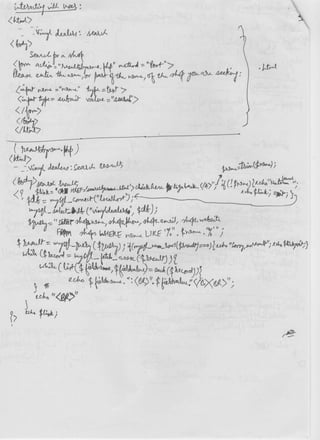 interacting with users:
<html>
- - Vinyl dealers: search
<body>
Search for a shop
<form action="resultbyname.php" method="post">
Please enter the name, (or part of the name, of the shop you are seeking:
<input name="name" type=text>
<input type=submit value="search">
</form>
</body>
</html>
.html
(resultbyname.php)
<html>
- - Vinyl dealers: Search results
<body> search result:
$name=trim($name);
<? $link=
click here
if(!$name){echo
echo $link; exit;}
$db = mysql_connect("localhost");
mysql_select_db("vinyldealers", $db);
$query="select shop.name, shop.phone, shop.email, shop.website
FROM shop WHERE name LIKE '%".$name."%'";
$result = mysql_query($query); if(mysql_num_rows($result)==0){echo "sorry, no result"; echo $link; exit;}
while ($record = mysql_fetch_assoc($result)){
while (list($fieldname, $fieldvalue)=each($record)){
echo $fieldname.":<B>".$fieldvalue."</B><BR>";
}
echo "<BR>"
}
echo $link;
?>